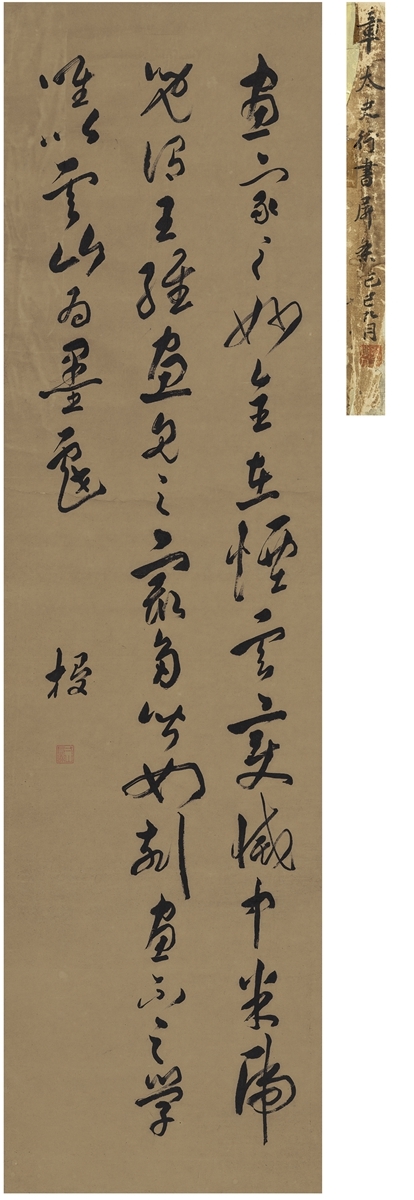 畫家之妙全在煙雲變滅中米虎
兒謂王維畫見之最多皆如刻畫不足學
唯以雲山為墨戲
章太史行書屏条 巳九月